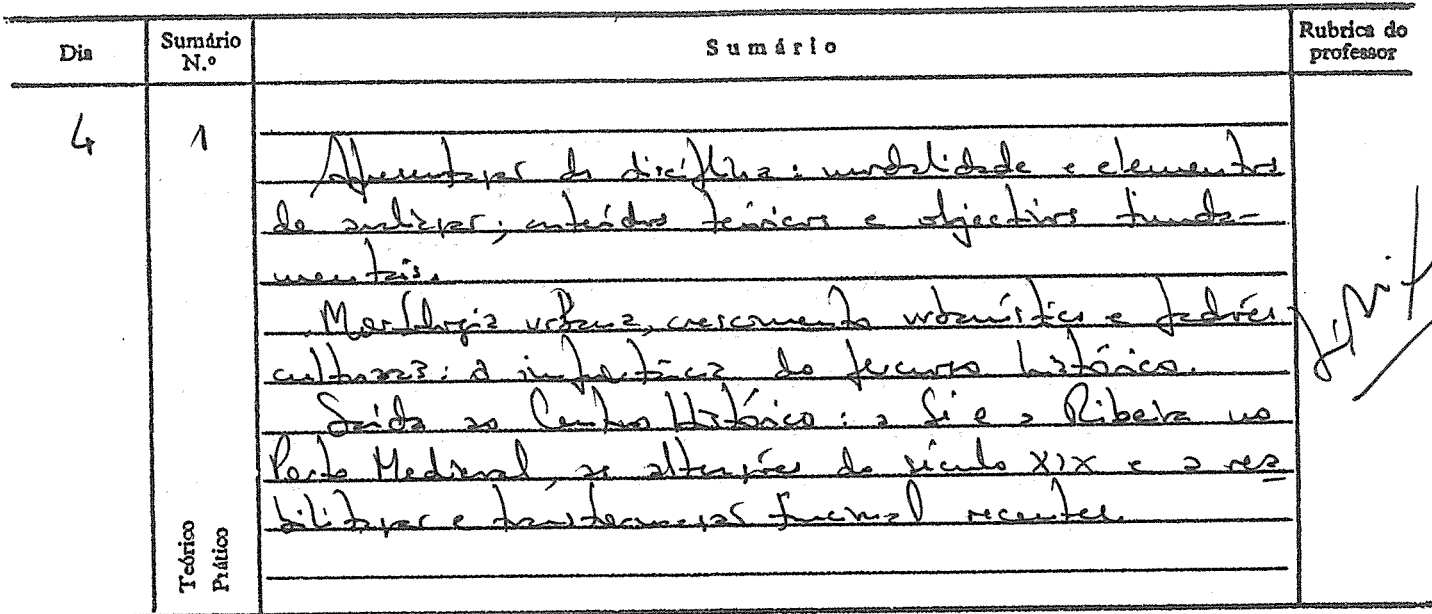 Dia Sumário N.º Sumário Rubrica do professor
4 1
Apresentação da disciplina: modalidade e elementos
de avaliação; conteúdos teóricos e objectivos funda-
mentais.
Morfologia urbana, crescimento urbanístico e padrões
culturais: a importância do percurso histórico.
Saída ao Centro Histórico: a Sé e a Ribeira no
Porto Medieval, as alterações do século XIX e a rea
bilitação e transformação funcional recentes.
Teórico
Prático